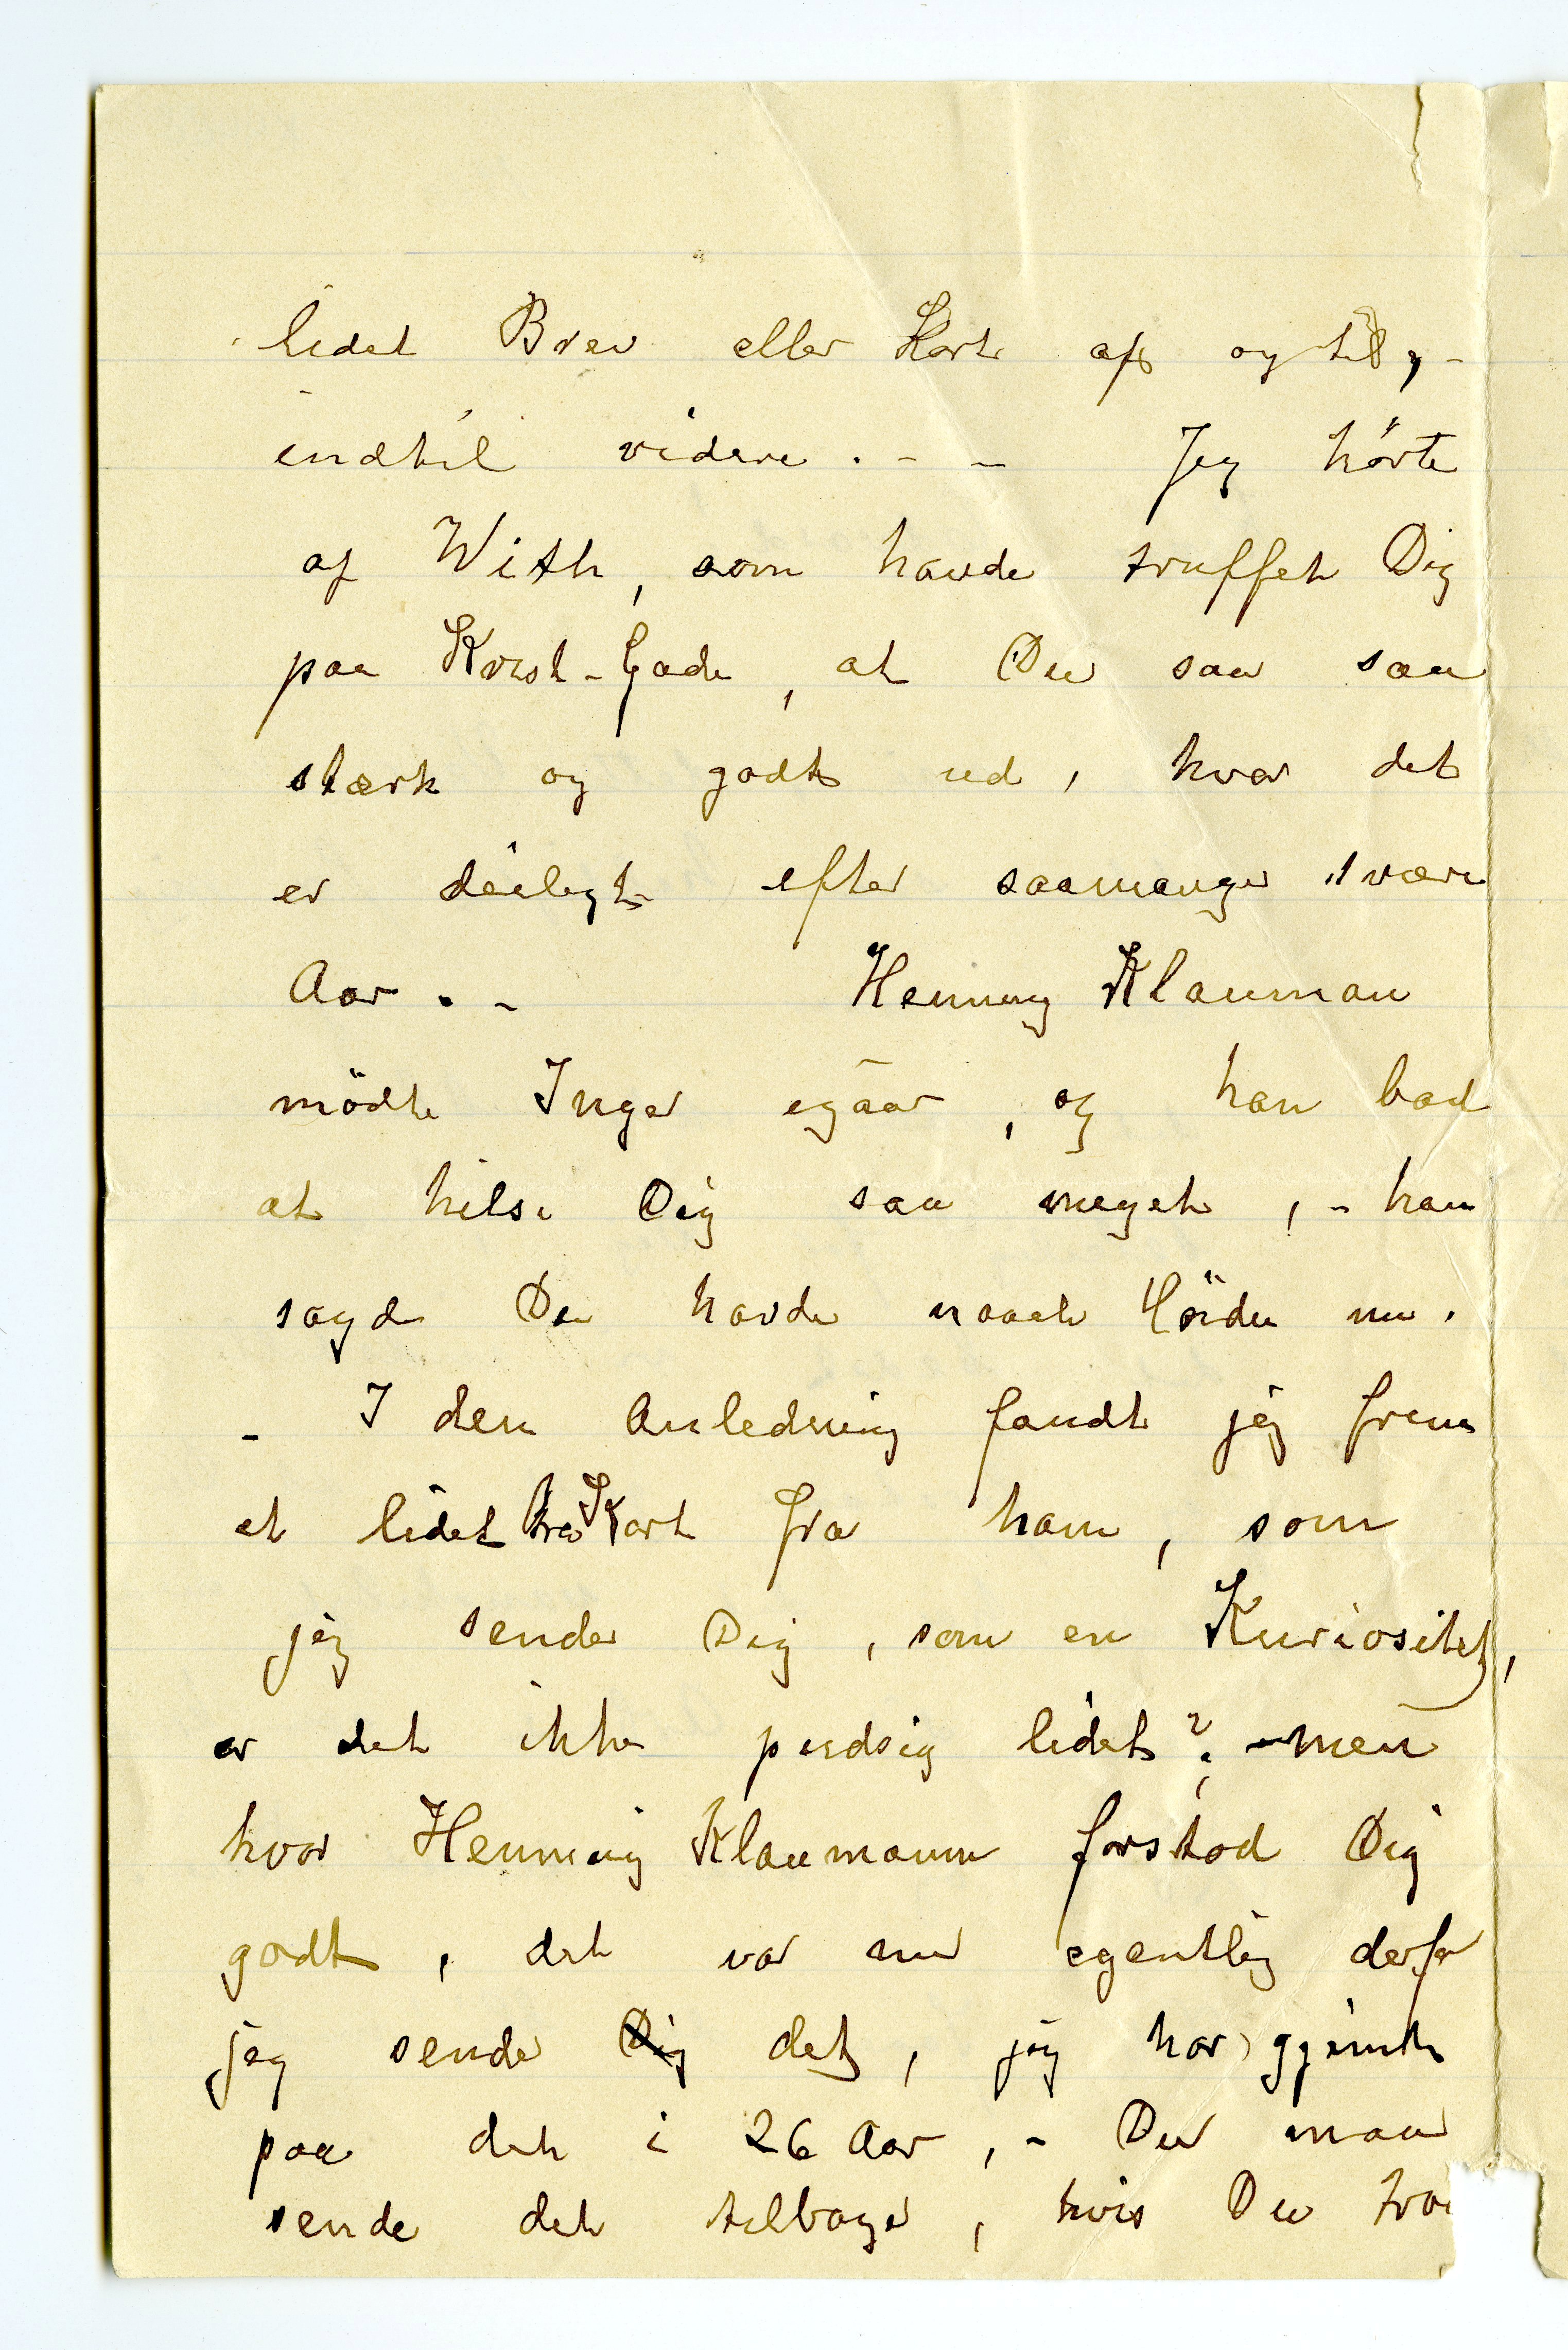 lidet Brev eller Kort af og til, -
indtil videre. - - Jeg hørte
af With, som havde truffet Dig
paa Krist-Gade, at Du saa saa
stærk og godt ud, hvor det
er deiligt efter saamange svære
Aar. - Henning Klauman
mödte Inger igaar, og han bad
at hilse Dig saa meget, - han
sagde Du havde naaet Höiden nu.
- I den Anledning fandt jeg frem
et lidet Kort fra ham, som
jeg sender Dig, som en Kuriositet,
er det ikke pudsig lidet? - men
hvor Henning Klaumann forstod Dig
godt, det var nu egentlig derfor
jeg sender Dig det, jeg har gjemt
paa det i 26 Aar, - Du maa
sende det tilbage, hvis Du